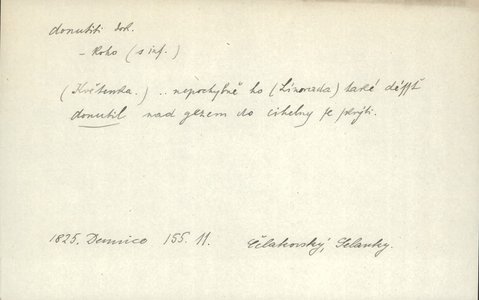 donutiti dok.
– koho (s inf.)
(Květenka.) .. nepochybně ho (Limonada) také déšť
donutil nad do cihelny se
1825. 155. 11. Čelakovský, Selanky.